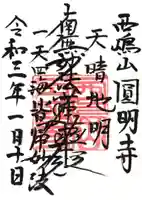 西嶋山 圓明寺
天晴地明
南無妙法蓮華経
一天四海皆帰妙法
令和三年一月十一日